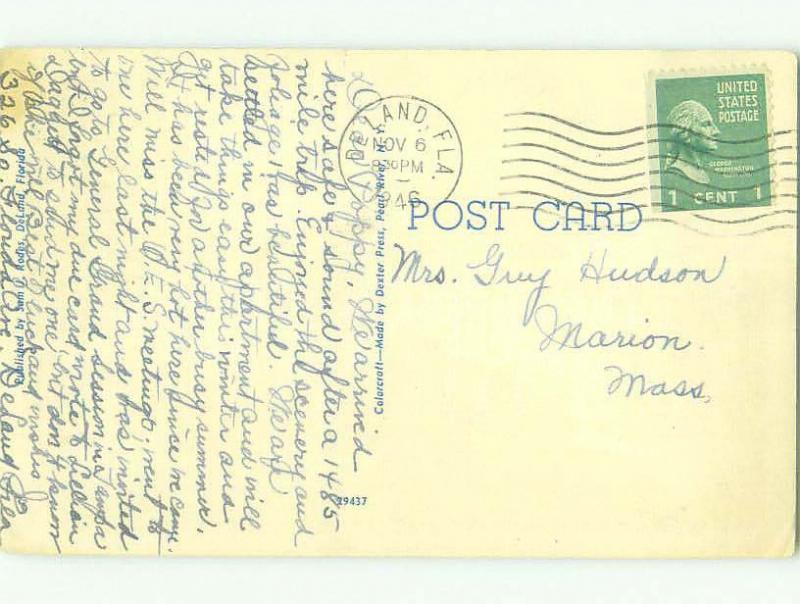 Dear Poppy, We arrived
here safe & sound after a 1485
mile trip. Enjoyed the scenery and
foliage, was beautiful. We are
settled in our apartment and will
take things easy this winter and
get rested for another busy summer.
It has been very hot here since we came.
Will miss the O.E.S. meetings, went to
one here last night and was invited
to go to General Grand Session in Tampa
but I forgot my due card, wrote to Lillian
to send me one, but don't know
if she will. Best of luck and wishes
326 So. Florida Ave. DeLand Fla
Published by Sam J. Rodes, DeLand, Florida
Colorcraft—Made by Dexter Press, Pearl River, N.Y.
29437
DELAND, FLA.
NOV 6
8 30 PM
1946
UNITED
STATES
POSTAGE
GEORGE
WASHINGTON
1 CENT 1
POST CARD
Mrs. Guy Hudson
Marion.
Mass.